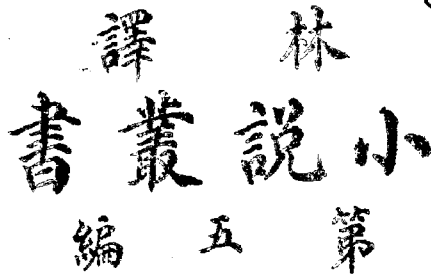 林譯
小説叢書
第五編